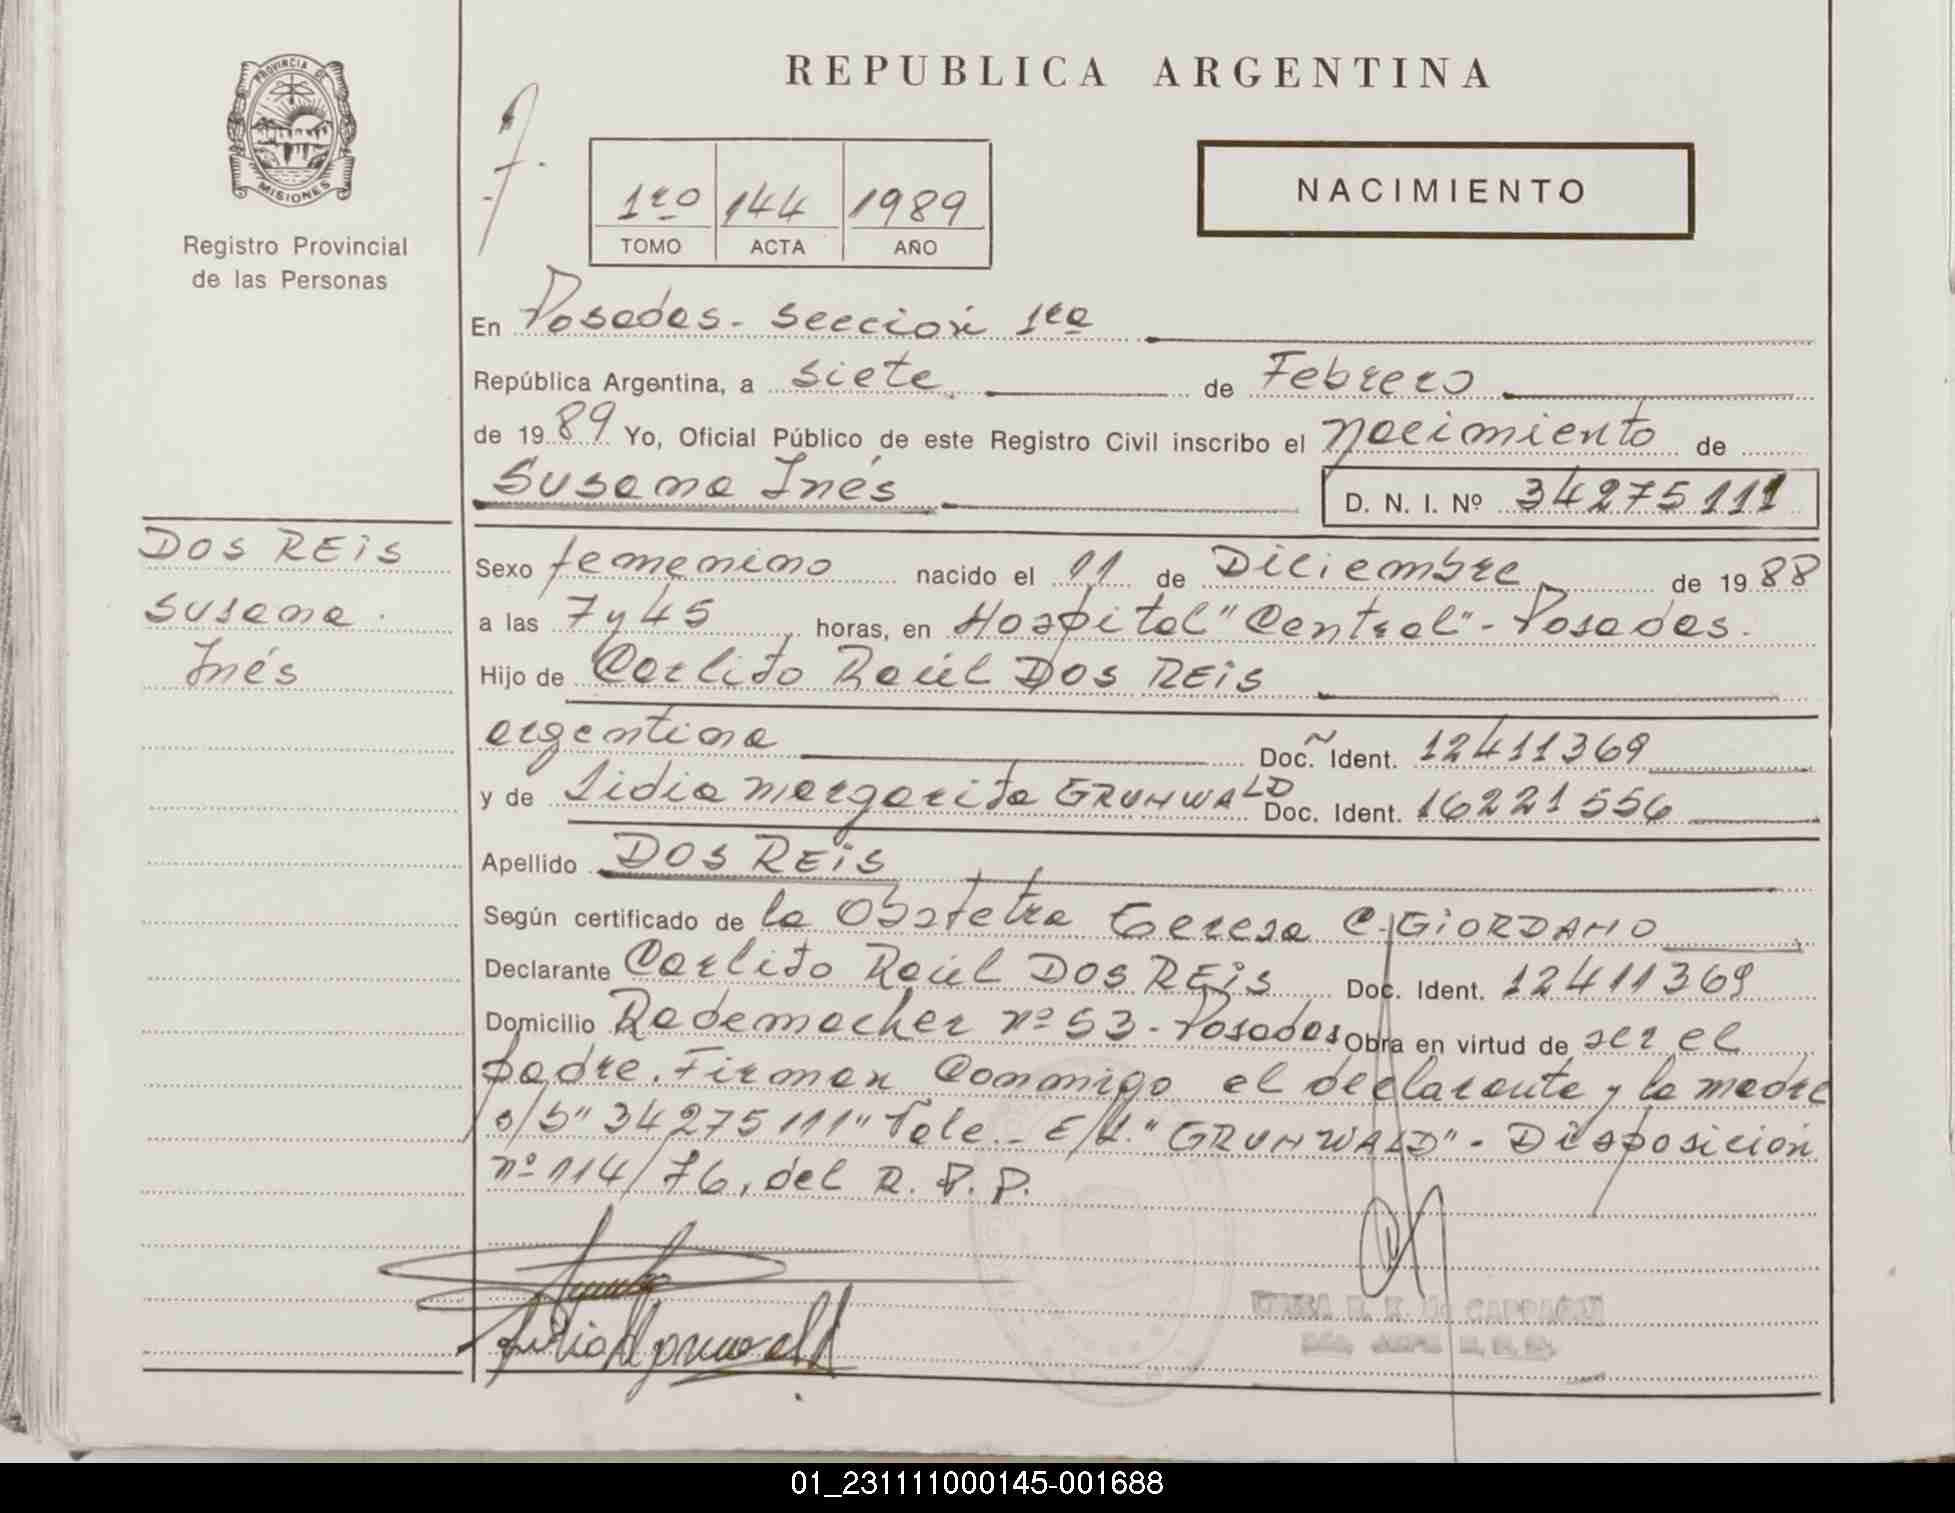 PROVINCIA DE
MISIONES
Registro Provincial
de las Personas
REPUBLICA ARGENTINA
1ro 144 1989
TOMO ACTA AÑO
NACIMIENTO
En Posadas - Sección 1ra
República Argentina, a siete de Febrero
de 1989 Yo, Oficial Público de este Registro Civil inscribo el nacimiento de
Susana Inés D. N. I. Nº 34275111
DOS REIS
Susana
Inés
Sexo femenino nacido el 11 de Diciembre de 1988
a las 7 y 45 horas, en Hospital "Central" - Posadas.
Hijo de Carlito Raúl DOS REIS
argentina Doc. Ident. 12411369
y de Lidia Margarita GRUNWALD Doc. Ident. 16221556
Apellido DOS REIS
Según certificado de la Obstetra Teresa C. GIORDANO
Declarante Carlito Raúl DOS REIS Doc. Ident. 12411369
Domicilio Rademacher nº 53 - Posadas Obra en virtud de ser el
padre. Firman Conmigo el declarante y la madre
s/b "34275111" Vale. - E/L. "GRUNWALD" - Disposición
nº 114/76, del R. P. P.
01_231111000145-001688